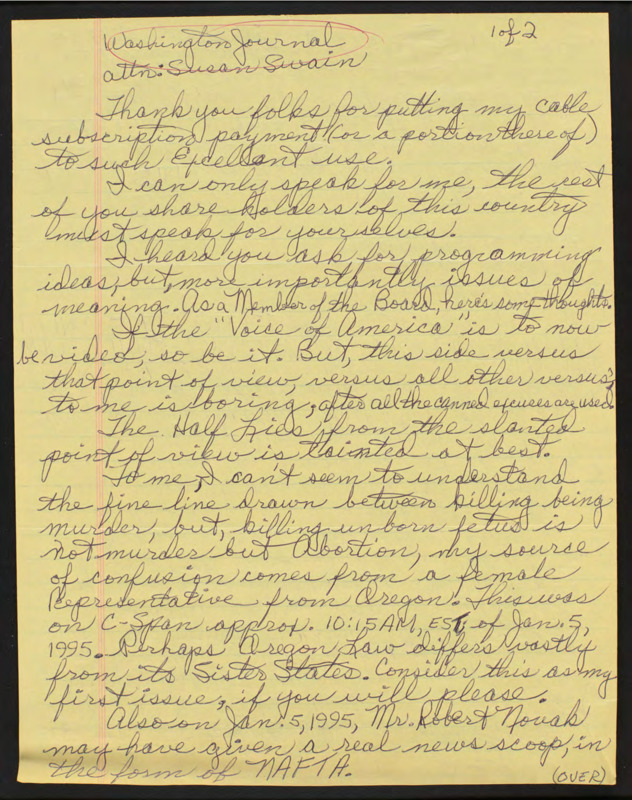 1 of 2
Washington Journal
attn: Susan Swain
Thank you folks for putting my cable
subscription payment (or a portion there of)
to such Excellent use.
I can only speak for me, the rest
of you share holders of this country
must speak for yourselves.
I heard you ask for programming
ideas, but, more importantly issues of
meaning. As a Member of the Board, here's some thoughts.
If the "Voice of America" is to now
be video, so be it. But, this side versus
that point of view, versus all other versus',
to me is boring, after all the canned excuses are used.
The Half Lies from the slanted
point of view is tainted at best.
To me, I can't seem to understand
the fine line drawn between killing being
murder, but, killing unborn fetus is
not murder but Abortion, my source
of confusion comes from a female
Representative from Oregon. This was
on C-Span approx. 10:15 AM, EST, of Jan. 5,
1995. Perhaps Oregon Law differs vastly
from its Sister States. Consider this as my
first issue, if you will please.
Also on Jan. 5, 1995, Mr. Robert Novak
may have given a real news scoop, in
the form of NAFTA.
(OVER)